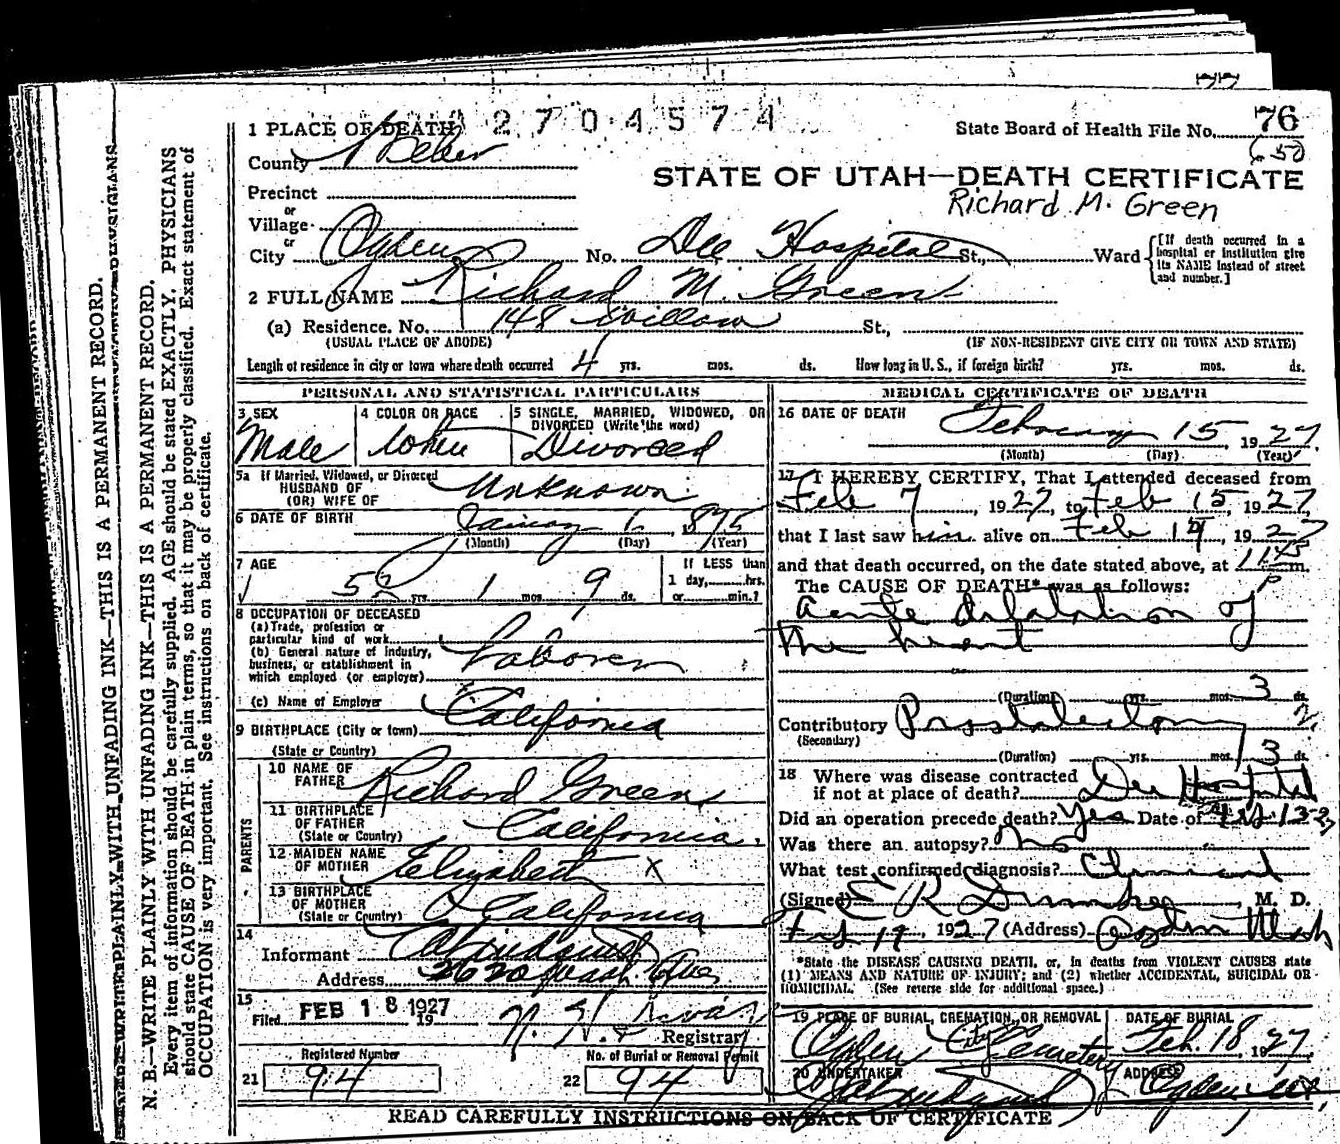 77
1 PLACE OF DEATH 2704574
State Board of Health File No. 76
650
County Weber
STATE OF UTAH—DEATH CERTIFICATE
Richard M. Green
Precinct
or
Village
or
City Ogden No. Dee Hospital St., Ward
[If death occurred in a hospital or institution give its NAME instead of street and number.]
2 FULL NAME Richard M. Green
(a) Residence. No. 148 Willow St.,
(USUAL PLACE OF ABODE) (IF NON-RESIDENT GIVE CITY OR TOWN AND STATE)
Length of residence in city or town where death occurred 4 yrs. mos. ds. How long in U. S., if foreign birth? yrs. mos. ds.
PERSONAL AND STATISTICAL PARTICULARS
3 SEX Male
4 COLOR OR RACE White
5 SINGLE, MARRIED, WIDOWED, OR DIVORCED (Write the word) Divorced
5a If Married, Widowed, or Divorced
HUSBAND OF
(OR) WIFE OF Unknown
6 DATE OF BIRTH January 6, 1875
(Month) (Day) (Year)
7 AGE 52 yrs. 1 mos. 9 ds.
If LESS than
1 day, hrs.
or min.?
8 OCCUPATION OF DECEASED
(a) Trade, profession or
particular kind of work
(b) General nature of industry,
business, or establishment in
which employed (or employer)
Laborer
(c) Name of Employer
9 BIRTHPLACE (City or town) California
(State or Country)
PARENTS
10 NAME OF FATHER Richard Green
11 BIRTHPLACE OF FATHER (State or Country) California
12 MAIDEN NAME OF MOTHER Elizabeth X
13 BIRTHPLACE OF MOTHER (State or Country) California
14 Informant
Address 2620 Wash. Ave
15 Filed FEB 18 1927 19
Registrar
Registered Number
21 94
No. of Burial or Removal Permit
22 94
MEDICAL CERTIFICATE OF DEATH
16 DATE OF DEATH February 15 1927
(Month) (Day) (Year)
17 I HEREBY CERTIFY, That I attended deceased from
Feb 7, 1927, to Feb 15, 1927,
that I last saw him alive on Feb 14, 1927
and that death occurred, on the date stated above, at 1145 p m.
The CAUSE OF DEATH* was as follows:
Acute dilatation of
the heart
(Duration) yrs. mos. 3 ds.
Contributory Prostatectomy
(Secondary)
(Duration) yrs. mos. 3 ds.
18 Where was disease contracted
if not at place of death? Dee Hospital
Did an operation precede death? Yes Date of Feb. 13-27
Was there an autopsy? no
What test confirmed diagnosis? Clinical
(Signed) E R Dumke, M. D.
Feb 17, 1927 (Address) Ogden Utah
*State the DISEASE CAUSING DEATH, or, in deaths from VIOLENT CAUSES state
(1) MEANS AND NATURE OF INJURY; and (2) whether ACCIDENTAL, SUICIDAL OR
HOMICIDAL. (See reverse side for additional space.)
19 PLACE OF BURIAL, CREMATION, OR REMOVAL DATE OF BURIAL
Ogden City Cemetery Feb. 18, 1927
20 UNDERTAKER ADDRESS
Ogden Utah
READ CAREFULLY INSTRUCTIONS ON BACK OF CERTIFICATE
N. B.—WRITE PLAINLY WITH UNFADING INK—THIS IS A PERMANENT RECORD.
Every item of information should be carefully supplied. AGE should be stated EXACTLY. PHYSICIANS
should state CAUSE OF DEATH in plain terms, so that it may be properly classified. Exact statement of
OCCUPATION is very important. See instructions on back of certificate.